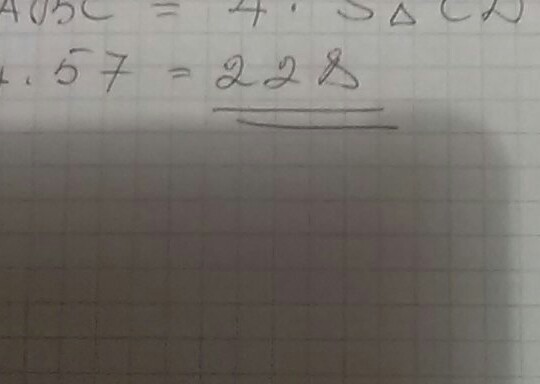 ABC = 4 . S △ CD
. 57 = 228